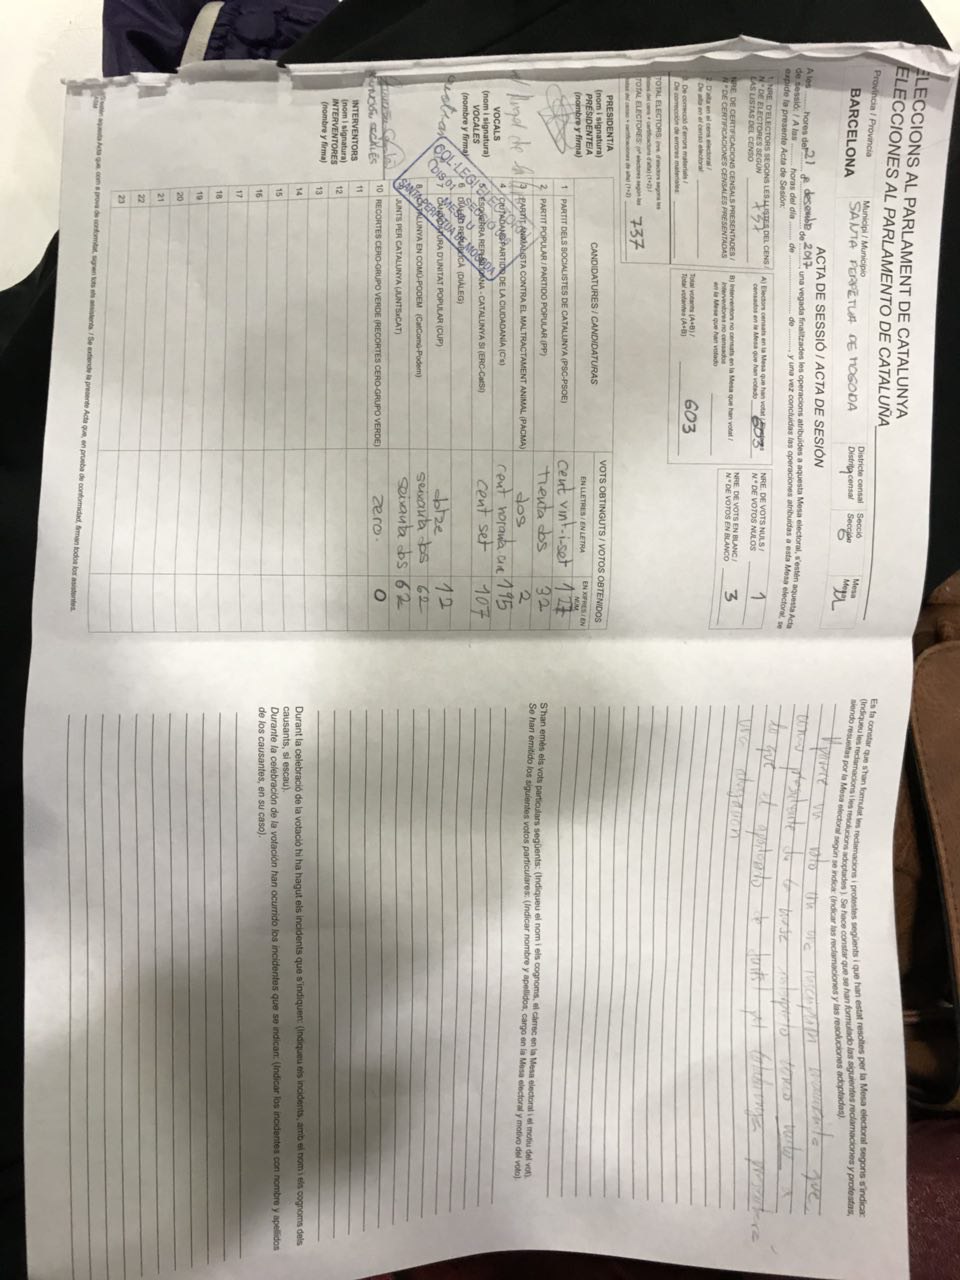 ELECCIONS AL PARLAMENT DE CATALUNYA
ELECCIONES AL PARLAMENTO DE CATALUÑA
Província / Provincia
BARCELONA
Municipi / Municipio
SANTA PERPETUA DE MOGODA
Districte censal
Distrito censal
1
Secció
Sección
6
Mesa
Mesa
U
ACTA DE SESSIÓ / ACTA DE SESIÓN
A les ......... hores del 21 de desembre de 2017, una vegada finalitzades les operacions atribuïdes a aquesta Mesa electoral, s'estén aquesta Acta
de sessió / A las ......... horas del día ......... de ......... de ......... y una vez concluidas las operaciones atribuidas a esta Mesa electoral, se
expide la presente Acta de Sesión:
1. NRE. D'ELECTORS SEGONS LES LLISTES DEL CENS /
N.º DE ELECTORES SEGÚN
LAS LISTAS DEL CENSO 737
NRE. DE CERTIFICACIONS CENSALS PRESENTADES /
N.º DE CERTIFICACIONES CENSALES PRESENTADAS
2. D'alta en el cens electoral /
De alta en el censo electoral:
3. De correcció d'errors materials /
De corrección de errores materiales:
TOTAL ELECTORS (nre. d'electors segons les
llistes del cens + certificacions d'alta) (1+2) /
TOTAL ELECTORES: (nº electores según las
listas del censo + certificaciones de alta) (1+2)
737
A) Electors censats en la Mesa que han votat / Electores
censados en la Mesa que han votado 603
B) Interventors no censats en la Mesa que han votat /
Interventores no censados
en la Mesa que han votado
Total votants (A+B) /
Total votantes (A+B)
603
NRE. DE VOTS NULS /
N.º DE VOTOS NULOS 1
NRE. DE VOTS EN BLANC /
N.º DE VOTOS EN BLANCO 3
CANDIDATURES / CANDIDATURAS
VOTS OBTINGUTS / VOTOS OBTENIDOS
EN LLETRES / EN LETRA
EN XIFRES / EN NÚM.
1 PARTIT DELS SOCIALISTES DE CATALUNYA (PSC-PSOE) cent vint-i-set 127
2 PARTIT POPULAR / PARTIDO POPULAR (PP) trenta dos 32
3 PARTIT ANIMALISTA CONTRA EL MALTRACTAMENT ANIMAL (PACMA) dos 2
4 CIUTADANS-PARTIDO DE LA CIUDADANÍA (C's) cent noranta cinc 195
5 ESQUERRA REPUBLICANA - CATALUNYA SÍ (ERC-CatSí) cent set 107
6 DIÀLEG REPUBLICÀ (DIÀLEG)
7 CANDIDATURA D'UNITAT POPULAR (CUP) dotze 12
8 CATALUNYA EN COMÚ-PODEM (CatComú-Podem) seixanta dos 62
9 JUNTS PER CATALUNYA (JUNTSxCAT) seixanta dos 62
10 RECORTES CERO-GRUPO VERDE (RECORTES CERO-GRUPO VERDE) zero. 0
11
12
13
14
15
16
17
18
19
20
21
22
23
PRESIDENT/A
(nom i signatura)
PRESIDENTE/A
(nombre y firma)
VOCALS
(nom i signatura)
VOCALES
(nombre y firma)
INTERVENTORS
(nom i signatura)
INTERVENTORES
(nombre y firma)
COL·LEGI ELECTORAL
DIST. 1 SECC. 6
MESA U
SANTA PERPÈTUA DE MOGODA
S'estén aquesta Acta que, com a prova de conformitat, signen tots els assistents. / Se extiende la presente Acta que, en prueba de conformidad, firman todos los asistentes.
Es fa constar que s'han formulat les reclamacions i protestes següents i que han estat resoltes per la Mesa electoral segons s'indica:
(Indiqueu les reclamacions i les resolucions adoptades). Se hace constar que se han formulado las siguientes reclamaciones y protestas,
siendo resueltas por la Mesa electoral según se indica: (Indicar las reclamaciones y las resoluciones adoptadas).
un voto
que
presidente de la mesa
voto
que el
de Junts per Catalunya
una
S'han emès els vots particulars següents: (Indiqueu el nom i els cognoms, el càrrec en la Mesa electoral i el motiu del vot).
Se han emitido los siguientes votos particulares: (Indicar nombre y apellidos, cargo en la Mesa electoral y motivo del voto).
Durant la celebració de la votació hi ha hagut els incidents que s'indiquen: (Indiqueu els incidents, amb el nom i els cognoms dels
causants, si escau).
Durante la celebración de la votación han ocurrido los incidentes que se indican: (Indicar los incidentes con nombre y apellidos
de los causantes, en su caso).